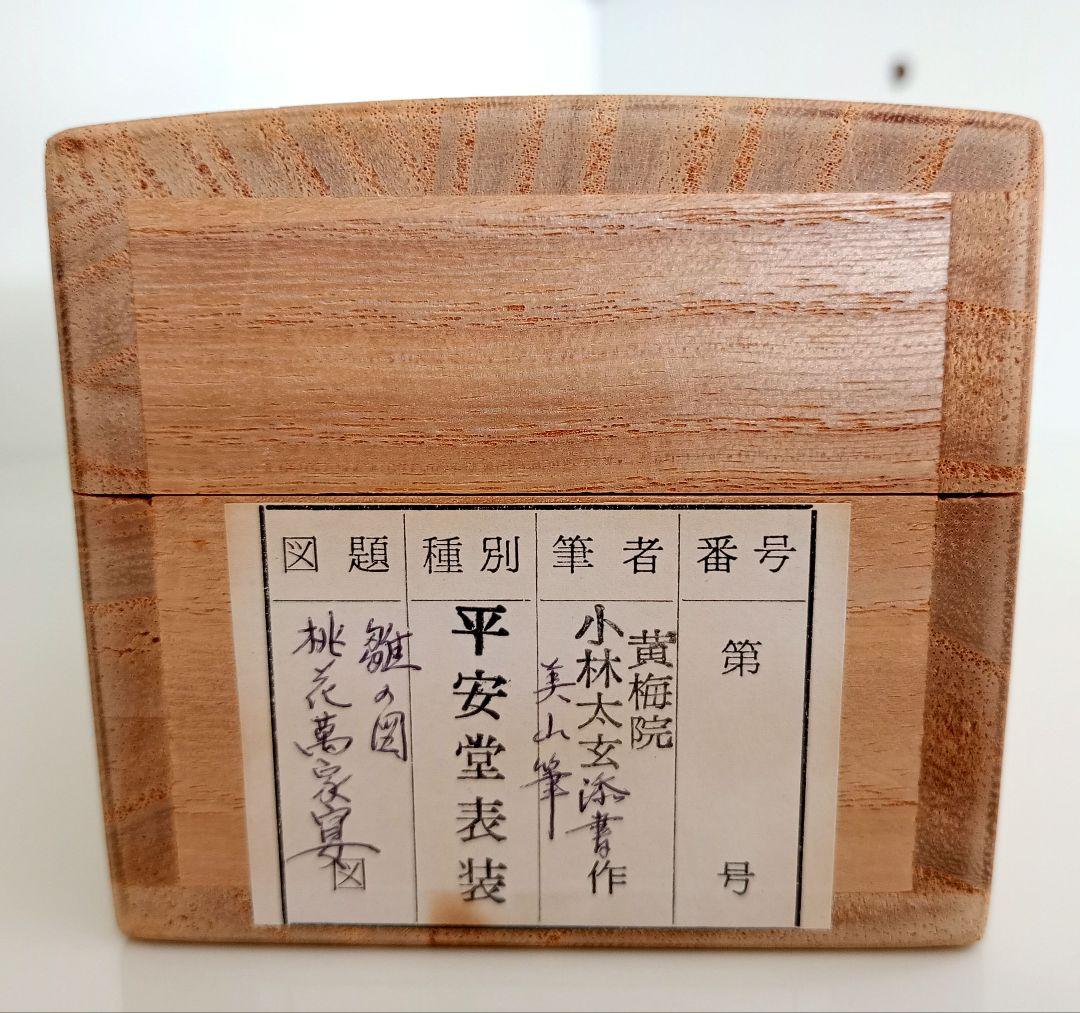 番号
第 号
筆者
黄梅院
小林太玄添書作
美山筆
種別
平安堂表装
図題
雛の図
桃花萬家宴
図